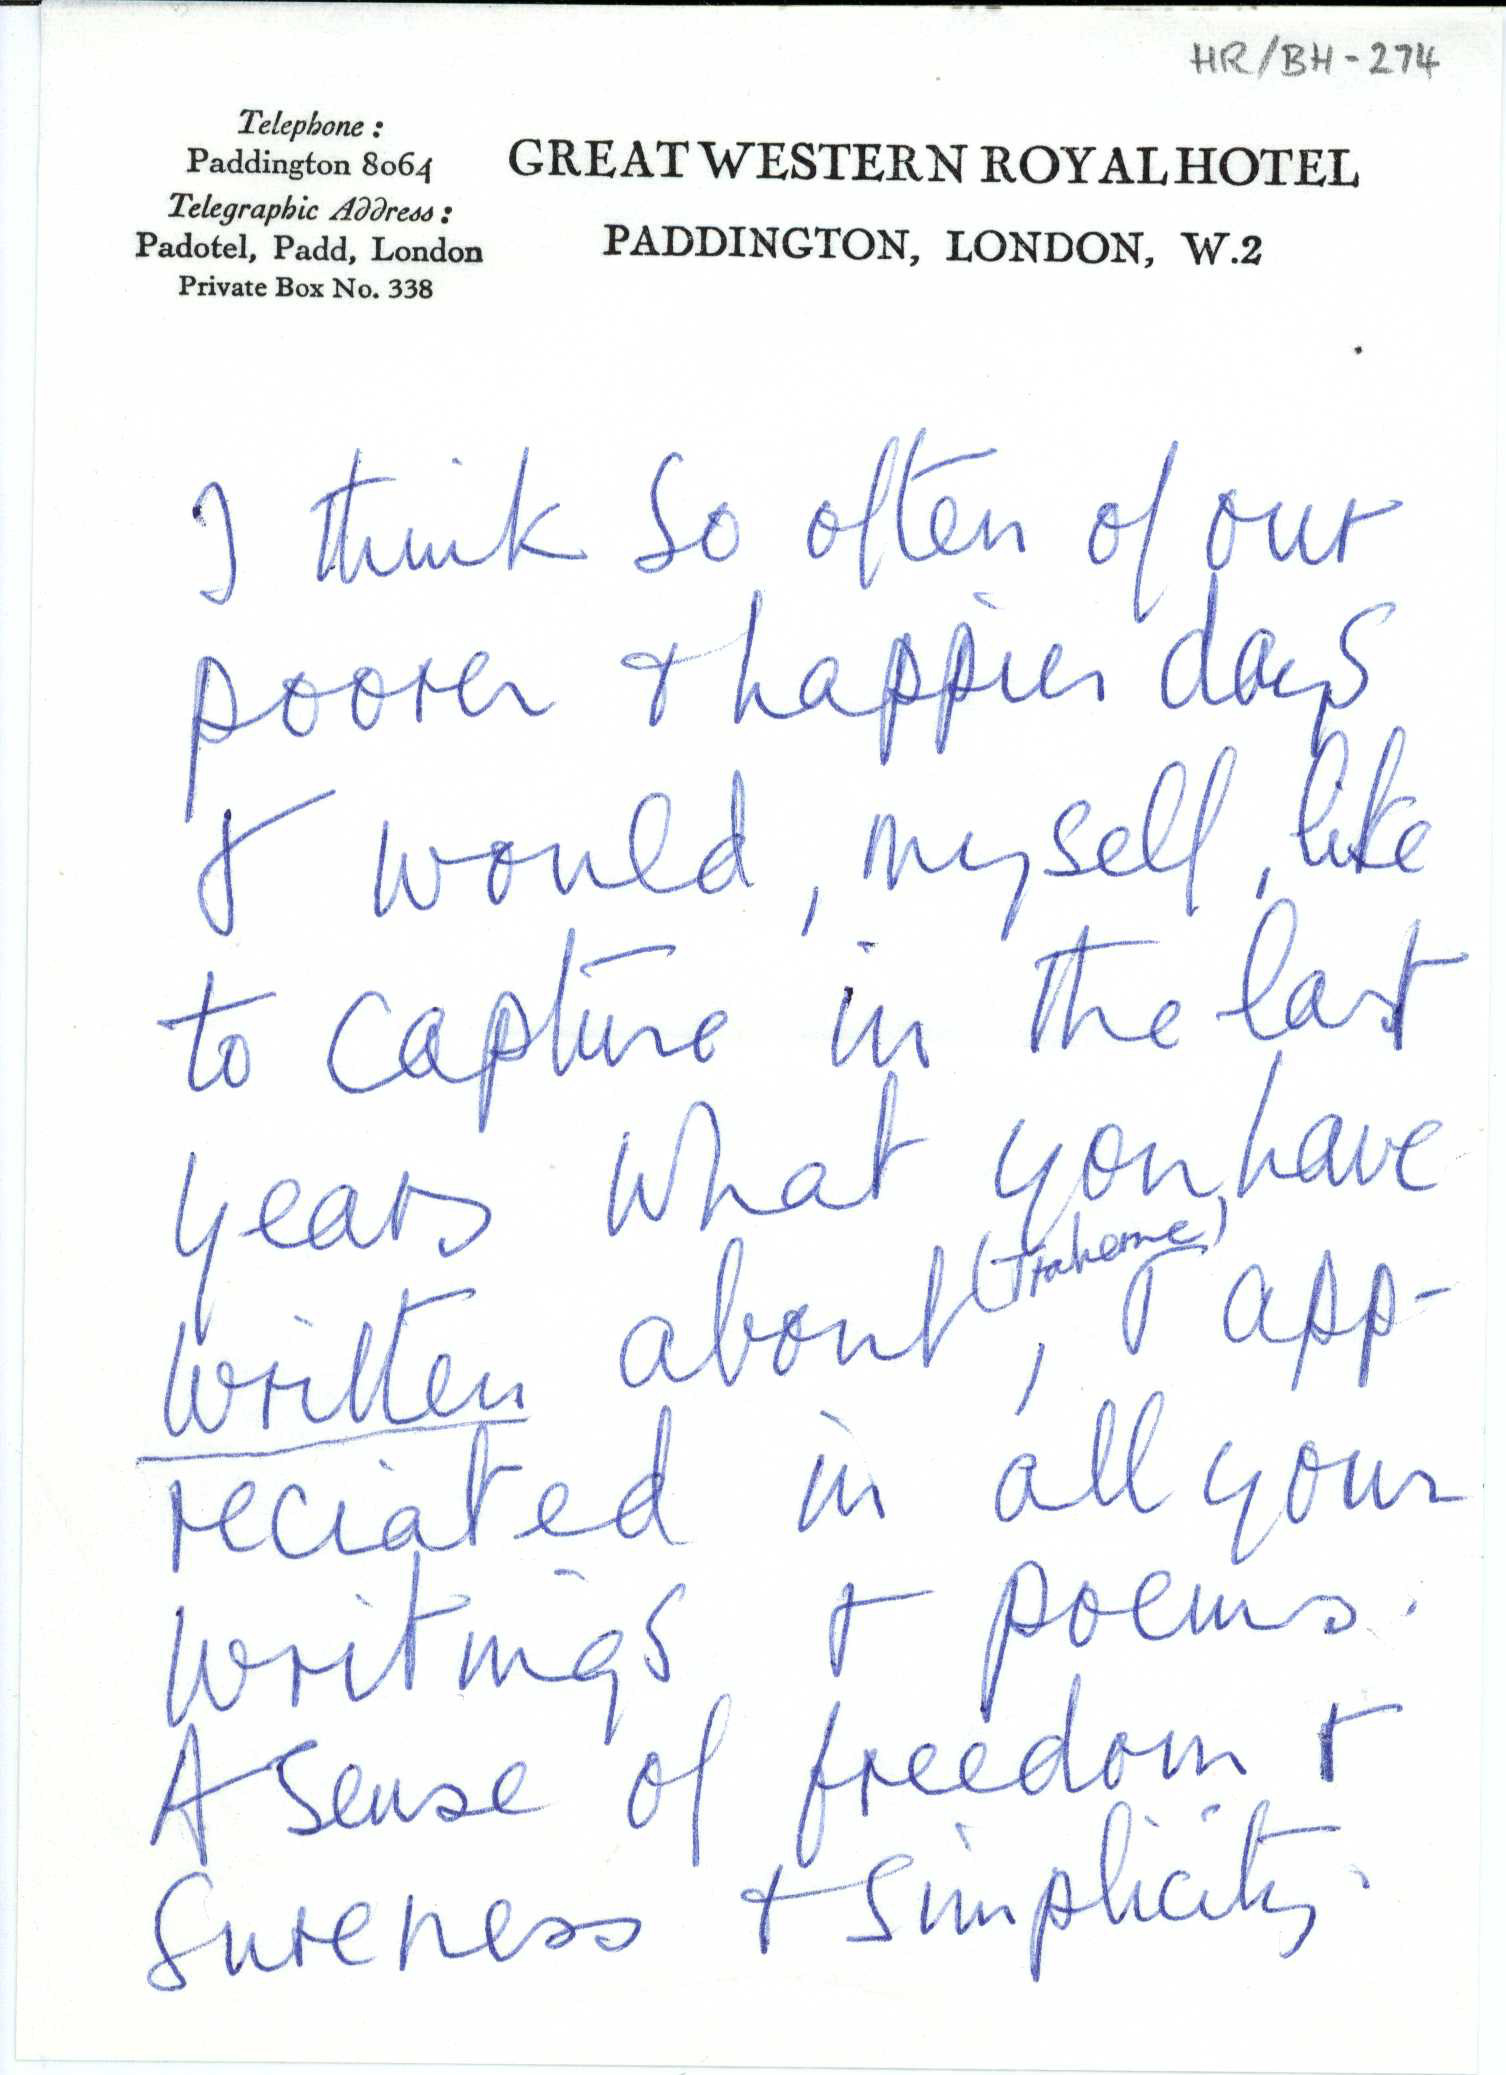 HR/BH-274
Telephone:
Paddington 8064
Telegraphic Address:
Padotel, Padd, London
Private Box No. 338
GREAT WESTERN ROYAL HOTEL
PADDINGTON, LONDON, W.2
I think so often of our
poorer + happier days
+ would, myself, like
to capture in the last
years what you have
written about (Traherne), + app-
reciated in all your
writings + poems.
A sense of freedom +
sureness + simplicity.